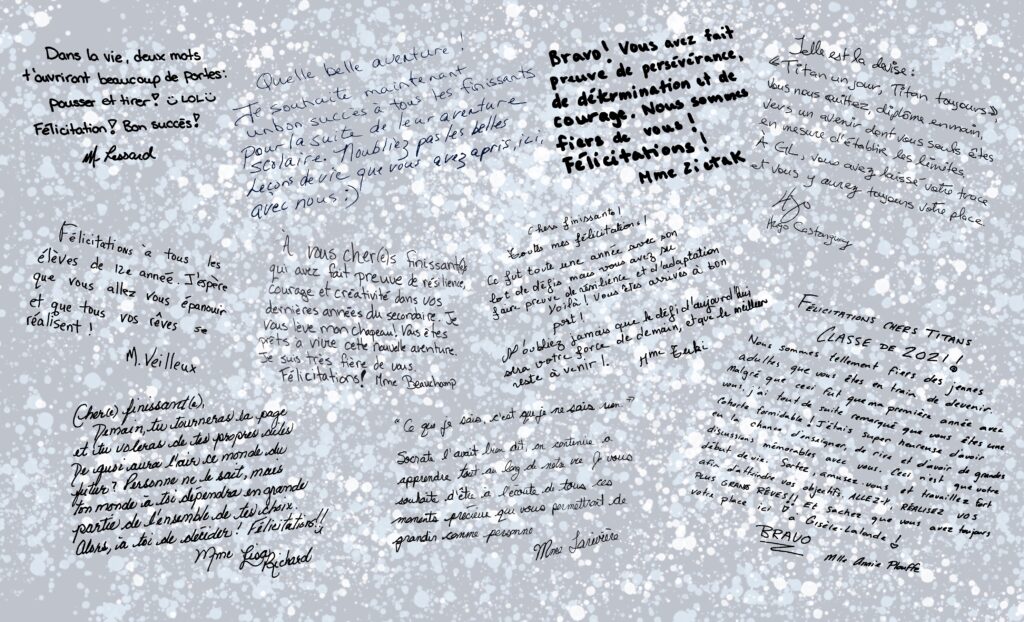 Dans la vie, deux mots
t'ouvriront beaucoup de portes:
pousser et tirer! LOL
Félicitation! Bon succès!
M. Lessard
Quelle belle aventure!
Je souhaite maintenant
un bon succès à tous les finissants
pour la suite de leur aventure
scolaire. N'oubliez pas les belles
leçons de vie que vous avez apris, ici,
avec nous :)
Bravo! Vous avez fait
preuve de persévérance,
de détermination et de
courage. Nous sommes
fiers de vous!
Félicitations!
Mme Ziutak
Telle est la devise:
« Titan un jour, Titan toujours »,
Vous nous quittez, diplôme en main,
vers un avenir dont vous seuls êtes
en mesure d'établir les limites.
À GL, vous avez laissé votre trace
et vous y aurez toujours votre place.
Hugo Castonguay
Félicitations à tous les
élèves de 12e année. J'espère
que vous allez vous épanouir
et que tous vos rêves se
réalisent!
M. Veilleux
À vous cher(e)s finissant(e)s
qui avez fait preuve de résilience,
courage et créativité dans vos
dernières années du secondaire. Je
vous lève mon chapeau! Vous êtes
prêts à vivre cette nouvelle aventure.
Je suis très fière de vous.
Félicitations! Mme Beauchamp
Chers finissants!
Toutes mes félicitations!
Ce fut toute une année avec son
lot de défis mais vous avez su
faire preuve de résilience et d'adaptation
Voilà! Vous êtes arrivés à bon
port!
N'oubliez jamais que le défi d'aujourd'hui
sera votre force de demain, et que le meilleur
reste à venir!
Mme
Félicitations chers Titans
Classe de 2021!
Nous sommes tellement fiers des jeunes
adultes que vous êtes en train de devenir.
Malgré que ceci fut ma première année avec
vous, j'ai tout de suite remarqué que vous êtes une
cohorte formidable! J'étais super heureuse d'avoir
eu la chance d'enseigner, de rire et d'avoir de grandes
discussions mémorables avec vous. Ceci n'est que votre
début de vie. Sortez, amusez-vous et travaillez fort
afin d'atteindre vos objectifs. ALLEZ-Y, RÉALISEZ VOS
PLUS GRANDS RÊVES!! Et sachez que vous avez toujours
votre place ici à Gisèle-Lalonde!
BRAVO
Mlle Annie Plouffe
Cher(e) finissant(e),
Demain, tu tourneras la page
et tu voleras de tes propres ailes
De quoi aura l'air ce monde du
futur? Personne ne le sait, mais
ton monde à toi dépendra en grande
partie de l'ensemble de tes choix.
Alors, à toi de décider! Félicitations!!
Mme Lisa Richard
"Ce que je sais, c'est que je ne sais rien."
Socrate l'avait bien dit, on continue à
apprendre tout au long de notre vie. Je vous
souhaite d'être à l'écoute de tous ces
moments précieux qui vous permettront de
grandir comme personne
Mme Larivière